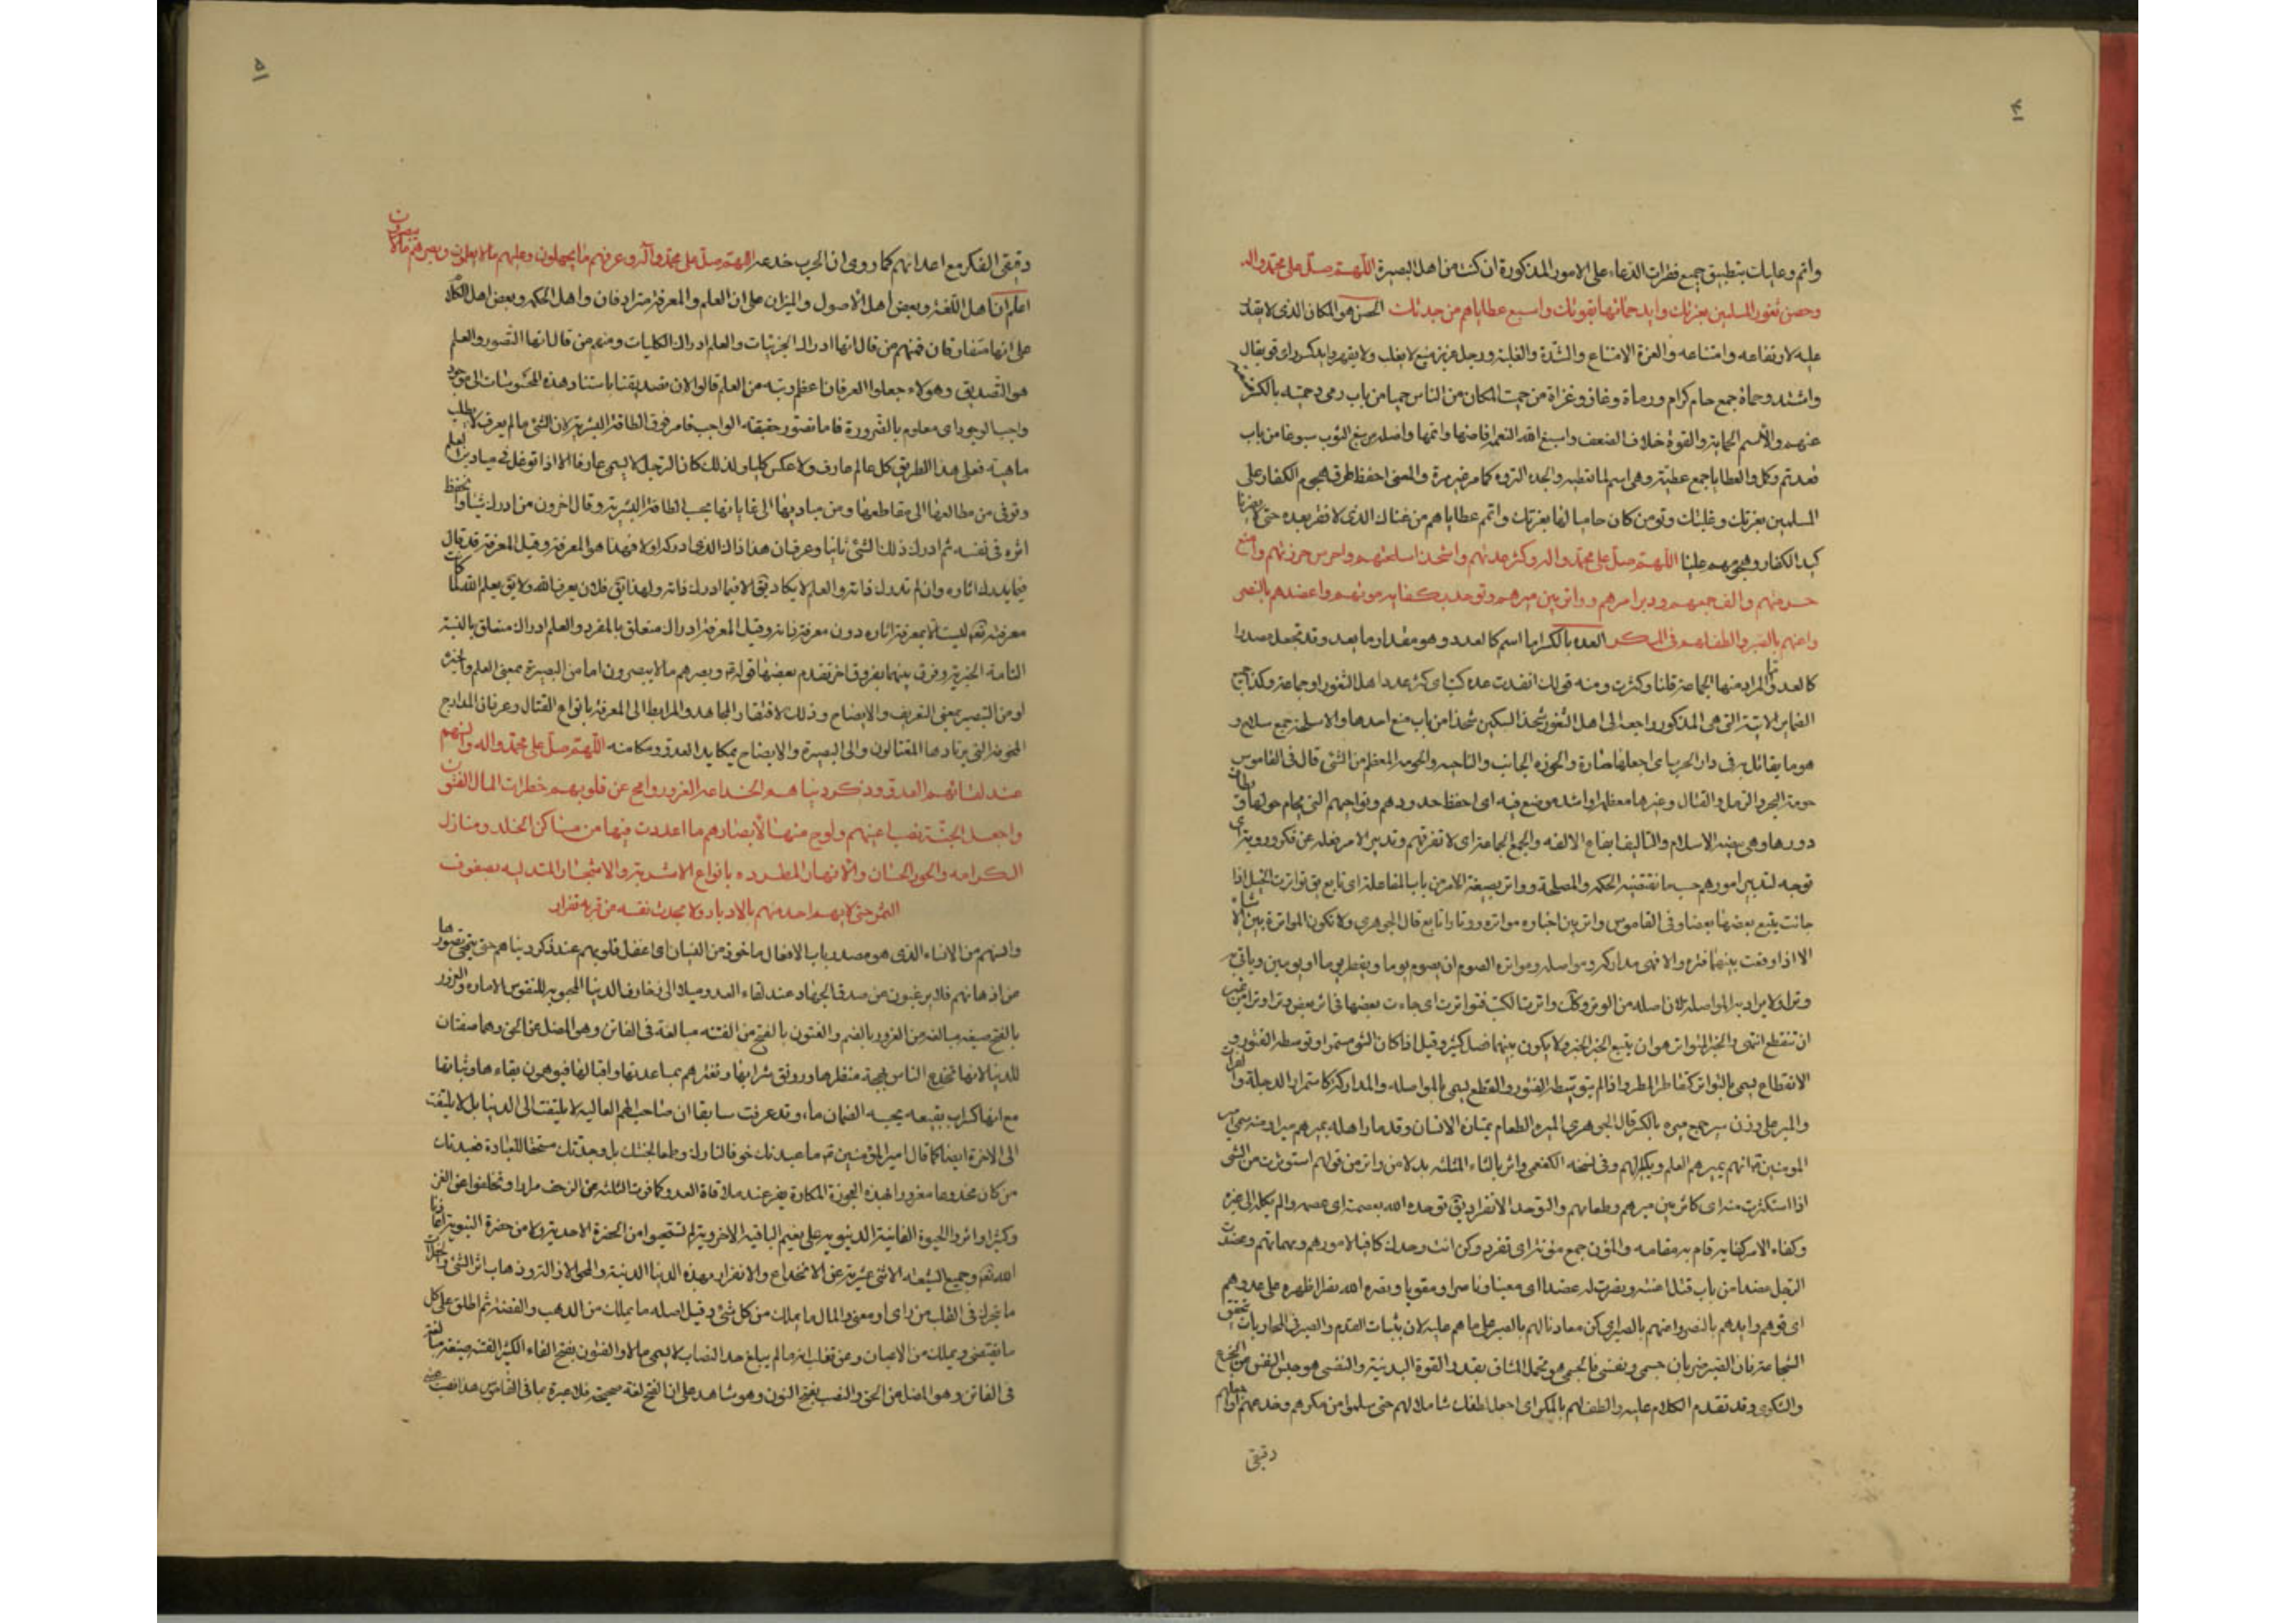 وانم وعليك بتطبيق جميع فقرات الدعاء على الامور المذكورة ان كنت من اهل البصيرة اللهم صل على محمد واله
وحصن ثغور المسلمين بعزتك وايد حماتها بقوتك واسبغ عطاياهم من جدتك الحصن هو المكان الذى لا يقدر
عليه لارتفاعه وامتناعه والعزة الامتناع والشدة والغلبة ورجل عزيز منيع لا يغلب ولا يقهر وايد كسدد اى قو يقال
واشتد وحماة جمع حام كرام ورماة وغاز وغزاة من حميت المكان من الناس حميا من باب رمى وحميته بالكسر
عنهم والاسم الحماية والقوة خلاف الضعف واسبغ الله النعم افاضها واتمها واصله من سبغ الثوب سبوغا من باب
قعد تم وكمل والعطايا جمع عطية وهى اسم لما تعطيه والجدة الثروة كما مر غير مرة والمعنى احفظ طرق هجوم الكفار على
المسلمين بعزتك وغلبتك وقو من كان حاميا لها بعزتك واتمم عطاياهم من غناك الذى لا فقر بعده حتى لا يضرنا
كيد الكفار وهجومهم علينا اللهم صل على محمد واله وكثر عدتهم واشحذ اسلحتهم واحرس حوزتهم وامنع
حومتهم والف جمعهم ودبر امرهم وواتر بين ميرهم وتوحد بكفاية مؤنهم واعضدهم بالنصر
واعنهم بالصبر والطف لهم فى المكر العدة بالكسر اما اسم كالعدد وهو مقدار ما يعد وقد تجعل مصدرا
كالعد والمراد منها الجماعة قلت او كثرت ومنه قولك انفدت عدة كتب اى كثر عدد اهل الثغور او جماعة وكذا جميع
الضماير الاتية التى هى المذكور راجعة الى اهل الثغور شحذ السكين شحذا من باب منع احدها والاسلحة جمع سلاح و
هو ما يقاتل به فى دار الحرب اى اجعلها ضارة والحوزة الجانب والناحية والحومة المعظم من الشئ قال فى القاموس
حومة البحر والرمل والقتال وغيرها معظمه او اشد موضع فيه اى احفظ حدودهم ونواحيهم التى يحام حولها و
دورها وهى بيضة الاسلام والتاليف ايقاع الالفة والجمع الجماعة اى لا تفرقهم وتدبير الامر فعله عن فكر وروية اى
توجه لتدبير امورهم حسبما تقتضيه الحكمة والمصلحة وواتر بصيغة الامر من باب المفاعلة اى تابع يق تواترت الخيل اذا
جائت يتبع بعضها بعضا وفى القاموس واتر بين اخباره مواترة ووتارا تابع قال الجوهرى ولا تكون المواترة بين الاشياء
الا اذا وقعت بينهما فترة والا فهى مداركة ومواصلة ومواترة الصوم ان يصوم يوما ويفطر يوما او يومين ويأتى به
وترا ولا يراد به المواصلة لان اصله من الوتر وكك واترت الكتب فتواترت اى جاءت بعضها فى اثر بعض وترا وترا من غير
ان تنقطع انتهى والخبر المتواتر هو ان يتبع الخبر الخبر ولا يكون بينهما فصل كثير وقيل اذا كان الشئ مستمرا وتوسطه الفتور و
الانقطاع يسمى بالتواتر كتقاطر المطر واذا لم يتوسطه الفتور والقطع يسمى بالمواصلة والمداركة كاستمرار الدجلة والفرات
والمير على وزن سير جمع ميرة بالكسر قال الجوهرى الميرة الطعام يمتاره الانسان وقد مار اهله يميرهم ميرا ومنه سمى امير
المومنين لانه يميرهم العلم ويكيل لهم وفى نسخة الكفعمى واثر بالثاء المثلثة بدلا من واتر من قولهم استوثرت من الشئ
اذا استكثرت منه اى كاثر بين ميرهم وطعامهم والتوحد الانفراد يق توحده الله بعصمته اى عصمه ولم يكله الى غيره
وكفاه الامر كفاية قام به مقامه والمؤن جمع مؤنة اى تفرد وكن انت وحدك كافيا لامورهم ومهماتهم وعضدت
الرجل عضدا من باب قتل اعنته ونصرت له عضدا اى معينا وناصرا ومقويا ونصره الله نصرا ظهره على عدوهم
اى قوهم وايدهم بالنصر واعنهم بالصبر اى كن معاونا لهم بالصبر على ما هم عليه لان بثبات القدم والصبر فى المحاربات تحقق
الشجاعة فان الصبر ضربان جسمى ونفسى فالجسمى هو تحمل المشاق بقدر القوة البدنية والنفسى هو حبس النفس عن الجزع
والشكوى وقد تقدم الكلام عليه والطف لهم بالمكر اى اجعل لطفك شاملا لهم حتى سلموا من مكرهم وخدعهم
دقيق
دقيق الفكر مع اعدائهم كما روى ان الحرب خدعة اللهم صل على محمد وآله وعرفهم ما يجهلون وعلمهم ما لا يعلمون وبصرهم ما لا يبصرون
اعلم ان اهل اللغة وبعض اهل الاصول والميزان على ان العلم والمعرفة مترادفان واهل الحكمة وبعض اهل الكلام
على انهما متفارقان فمنهم من قال انها ادراك الجزئيات والعلم ادراك الكليات ومنهم من قال انها التصور والعلم
هو التصديق وهولاء جعلوا العرفان اعظم رتبة من العلم قالوا لان تصديقنا باستناد هذه المحسوسات الى موجود
واجب الوجود اى معلوم بالضرورة فاما تصور حقيقة الواجب فامر فوق الطاقة البشرية لان الشئ ما لم يعرف لا يطلب
ماهيته فعلى هذا الطريق كل عالم عارف ولا عكس كليا ولذلك كان الرجل لا يسمى عارفا الا اذا توغل فى ميادين العلم
وترقى من مطالعها الى مقاطعها ومن مباديها الى غاياتها بحسب الطاقة البشرية وقال اخرون من ادرك شيئا وانحفظ
اثره فى نفسه ثم ادرك ذلك الشئ ثانيا وعرف ان هذا ذاك الذى ادركه اولا فهذا هو المعرفة وقيل المعرفة قد تقال
فيما يدرك اثاره وان لم تدرك ذاته والعلم لا يكاد يق الا فيما ادرك ذاته ولهذا يق فلان يعرف الله ولا يق يعلم الله لما كانت
معرفته تع ليست الا بمعرفة اثاره دون معرفة ذاته وقيل المعرفة ادراك متعلق بالمفرد والعلم ادراك متعلق بالنسبة
التامة الخبرية وفرق بينهما بفروق اخر تقدم بعضها قوله وبصرهم ما لا يبصرون اما من البصيرة بمعنى العلم والخبرة
او من التبصير بمعنى التعريف والايضاح وذلك لافتقار المجاهد والمرابط الى المعرفة بانواع القتال وعرفان المدارج
المخوفة التى يرتادها المقتالون والى البصيرة والايضاح بمكايد العدو ومكامنه اللهم صل على محمد واله وانسهم
عند لقائهم العدو ذكر دنياهم الخداعة الغرور وامح عن قلوبهم خطرات المال الفتون
واجعل الجنة نصب اعينهم ولوح منها لابصارهم ما اعددت فيها من مساكن الخلد ومنازل
الكرامة والحور الحسان والانهار المطردة بانواع الاشربة والاشجار المتدلية بصنوف
الثمر حتى لا يهم احد منهم بالادبار ولا يحدث نفسه من قرنه بفرار
وانسهم من الانساء الذى هو مصدر باب الافعال ماخوذ من النسيان اى اغفل قلوبهم عند ذكر دنياهم حتى ينمحى تصورها
من اذهانهم فلا يرغبون من صدق الجهاد عند لقاء العدو ميلا الى زخارف الدنيا المحبوبة للنفوس الامارة والغرور
بالفتح صيغة مبالغة من الغرور بالضم والفتون بالفتح من الفتنة مبالغة فى الفاتن وهو المضل عن الحق وهما صفتان
للدنيا لانها تخدع الناس ببهجة منظرها ورونق شرابها وتغرهم بمساعدتها واقبالها فيوهمون بقاءها وثباتها
مع انها كسراب بقيعة يحسبه الظمان ماء وقد عرفت سابقا ان صاحب الهمم العالية لا يلتفت الى الدنيا بل لا يلتفت
الى الاخرة ايضا كما قال امير المؤمنين ما عبدتك خوفا لنارك وطمعا لجنتك بل وجدتك مستحقا للعبادة فعبدتك
من كان مخدوعا مغرورا بهذه العجوزة المكارة يفر عند ملاقاة العدو كما فرت الثلثة عن الزحف مرارا وتخلفوا عن الغزو
وكثيرا واثروا الحيوة الفانية الدنيوية على نعيم الباقية الاخروية لم تستحيوا من الحضرة الاحدية ولا من حضرة النبوية
الله تع وجميع الشيعة الاثنى عشرية عن الانخداع والاغترار بهذه الدنيا الدنية والمحو الازالة وذهاب اثر الشئ
ما يتحرك فى القلب من راى او معنى والمال ما يملك من كل شئ وقيل اصله ما يملك من الذهب والفضة ثم اطلق على كل
ما يقتنى ويملك من الاعيان وعن ثعلب انه ما لم يبلغ حد النصاب لا يسمى مالا والفتون بفتح الفاء الكثير الفتنة صيغة مبالغة
فى الفاتن وهو المضل عن الحق والنصب بفتح النون وهو شاهد على ان الفتح لغة صحيحة فلا عبرة بما فى القاموس هذا نصب عينى